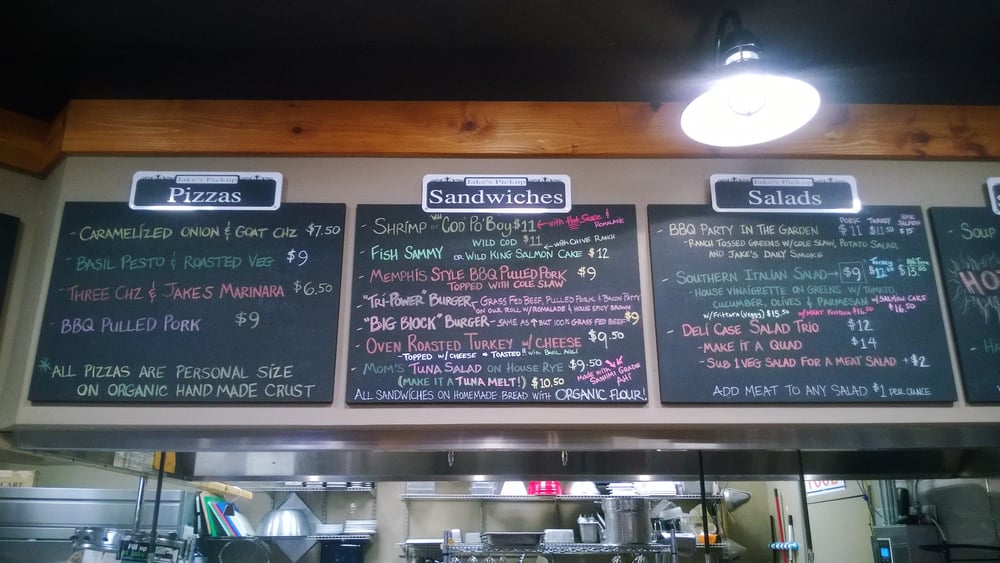 Jake's Pickup
Pizzas
- CARAMELIZED ONION & GOAT CHZ $7.50
- BASIL PESTO & ROASTED VEG $9
- THREE CHZ & JAKES MARINARA $6.50
- BBQ PULLED PORK $9
*ALL PIZZAS ARE PERSONAL SIZE
ON ORGANIC HAND MADE CRUST
Jake's Pickup
Sandwiches
- SHRIMP OR COD PO'BOY $11 ← WITH HOT SAUCE &
WILD COD $11 ← WITH CHIVE RANCH
- FISH SAMMY OR WILD KING SALMON CAKE $12
- MEMPHIS STYLE BBQ PULLED PORK $9
TOPPED WITH COLE SLAW
- "TRI-POWER" BURGER - GRASS FED BEEF, PULLED PORK, & BACON PATTY
ON OUR ROLL W/ROMALADE & HOUSE SPICY BROWN
- "BIG BLOCK" BURGER - SAME AS ↑ BUT 100% GRASS FED BEEF $9
- OVEN ROASTED TURKEY W/ CHEESE $9.50
- TOPPED W/CHEESE & TOASTED!! WITH BASIL AIOLI
- MOM'S TUNA SALAD ON HOUSE RYE $9.50
MADE WITH SASHIMI GRADE AHI
(MAKE IT A TUNA MELT!) $10.50
ALL SANDWICHES ON HOMEMADE BREAD WITH ORGANIC FLOUR!
Jake's Pickup
Salads
PORK TURKEY SALMON
- BBQ PARTY IN THE GARDEN $11 $11.50 $15
- RANCH TOSSED GREENS W/COLE SLAW, POTATO SALAD,
AND JAKE'S DAILY SMOKE
TURKEY
- SOUTHERN ITALIAN SALAD → $9
- HOUSE VINAIGRETTE ON GREENS W/ TOMATO,
CUCUMBER, OLIVES & PARMESAN W/SALMON CAKE
W/FRITTURA (VEGGY) $15.50 W/MEAT FRITTURA $16.50 $16.50
- DELI CASE SALAD TRIO $12
- MAKE IT A QUAD $14
- SUB 1 VEG SALAD FOR A MEAT SALAD +$2
ADD MEAT TO ANY SALAD $1 PER OUNCE
- SOUP
HO
- HA